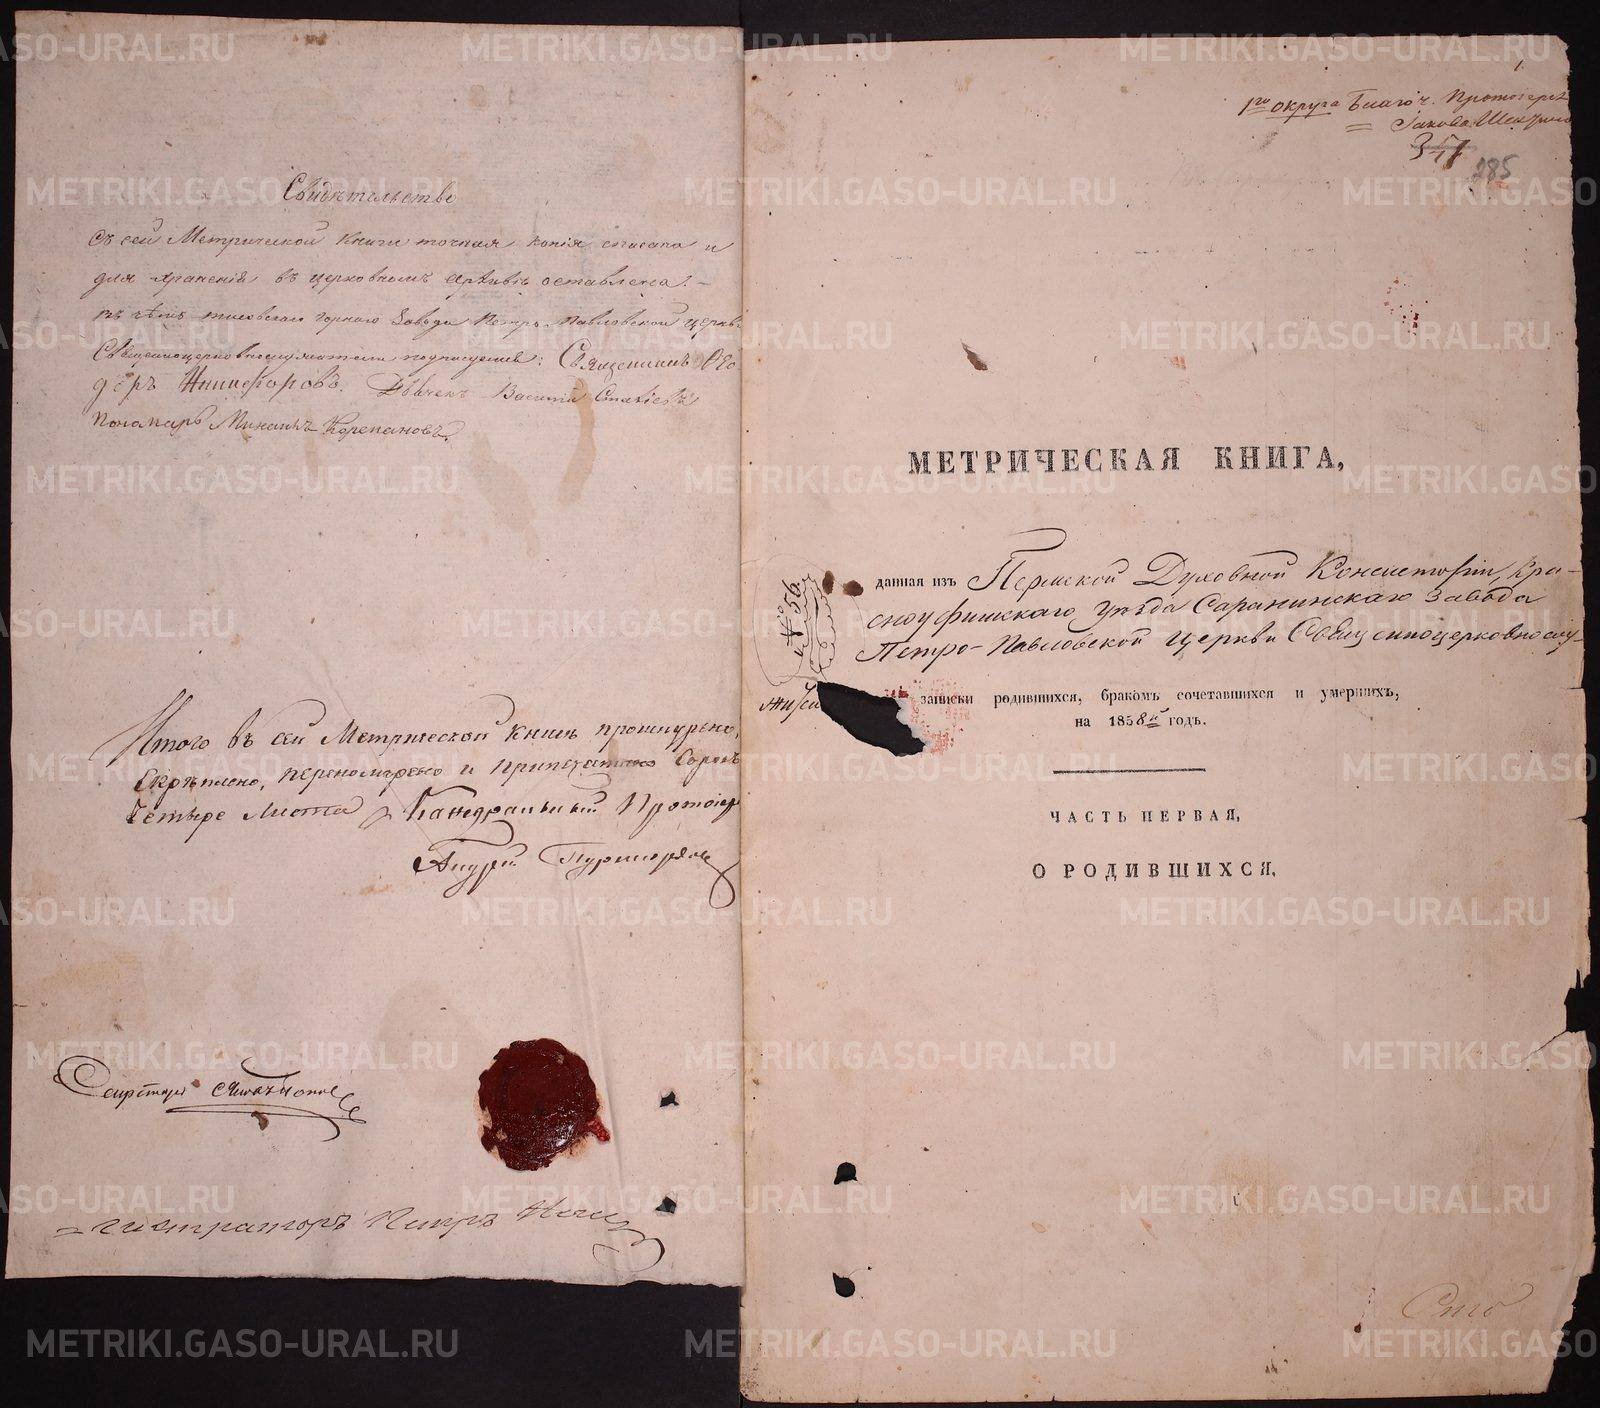 Свидѣтельство
Съ сей Метрической книги точная копія списана и
для храненія въ церковномъ архивѣ оставлена. –
въ чёмъ горнаго завода Петро-Павловской церкви
Священноцерковнослужители подписуемся: Священникъ Ѳео-
доръ Никифоровъ. Дьячекъ Василій
Пономарь Михаилъ Корепановъ.
Итого въ сей Метрической книгѣ прошнурено,
скрѣплено, перенумерено и припечатано Сорокъ
четыре листа. Каѳедральный Протоіер
Андрей
Секретарь
Петръ
1.
1го округа Благоч. Протоіерея
Іакова
185
МЕТРИЧЕСКАЯ КНИГА,
№ 56.
данная изъ Пермской Духовной Консисторіи, Кра-
сноуфимскаго уѣзда Саранинскаго завода
Петро-Павловской церкви Священноцерковнослу-
жите записки родившихся, бракомъ сочетавшихся и умершихъ,
на 1858й годъ.
ЧАСТЬ ПЕРВАЯ,
О РОДИВШИХСЯ.
METRIKI.GASO-URAL.RU